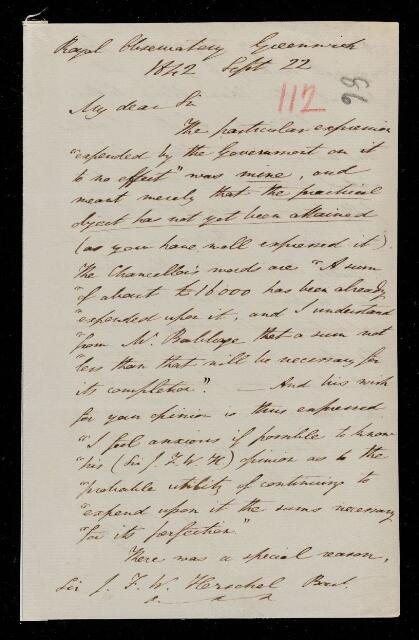 Royal Observatory Greenwich
1842 Sept 22
112
99
My dear Sir
The particular expression
"expended by the Government on it
to no effect" was mine, and
meant merely that the practical
object has not yet been attained
(as you have well expressed it).
The Chancellor's words are "A sum
"of about £16000 has been already
"expended upon it, and I understand
"from Mr. Babbage that a sum not
"less than that will be necessary for
its completion". — And his wish
for your opinion is thus expressed
"I feel anxious if possible to know
"his (Sir J. F. W. H.) opinion as to the
"probable utility of continuing to
"expend upon it the sums necessary
"for its perfection"
There was a special reason,
Sir J. F. W. Herschel Bart.